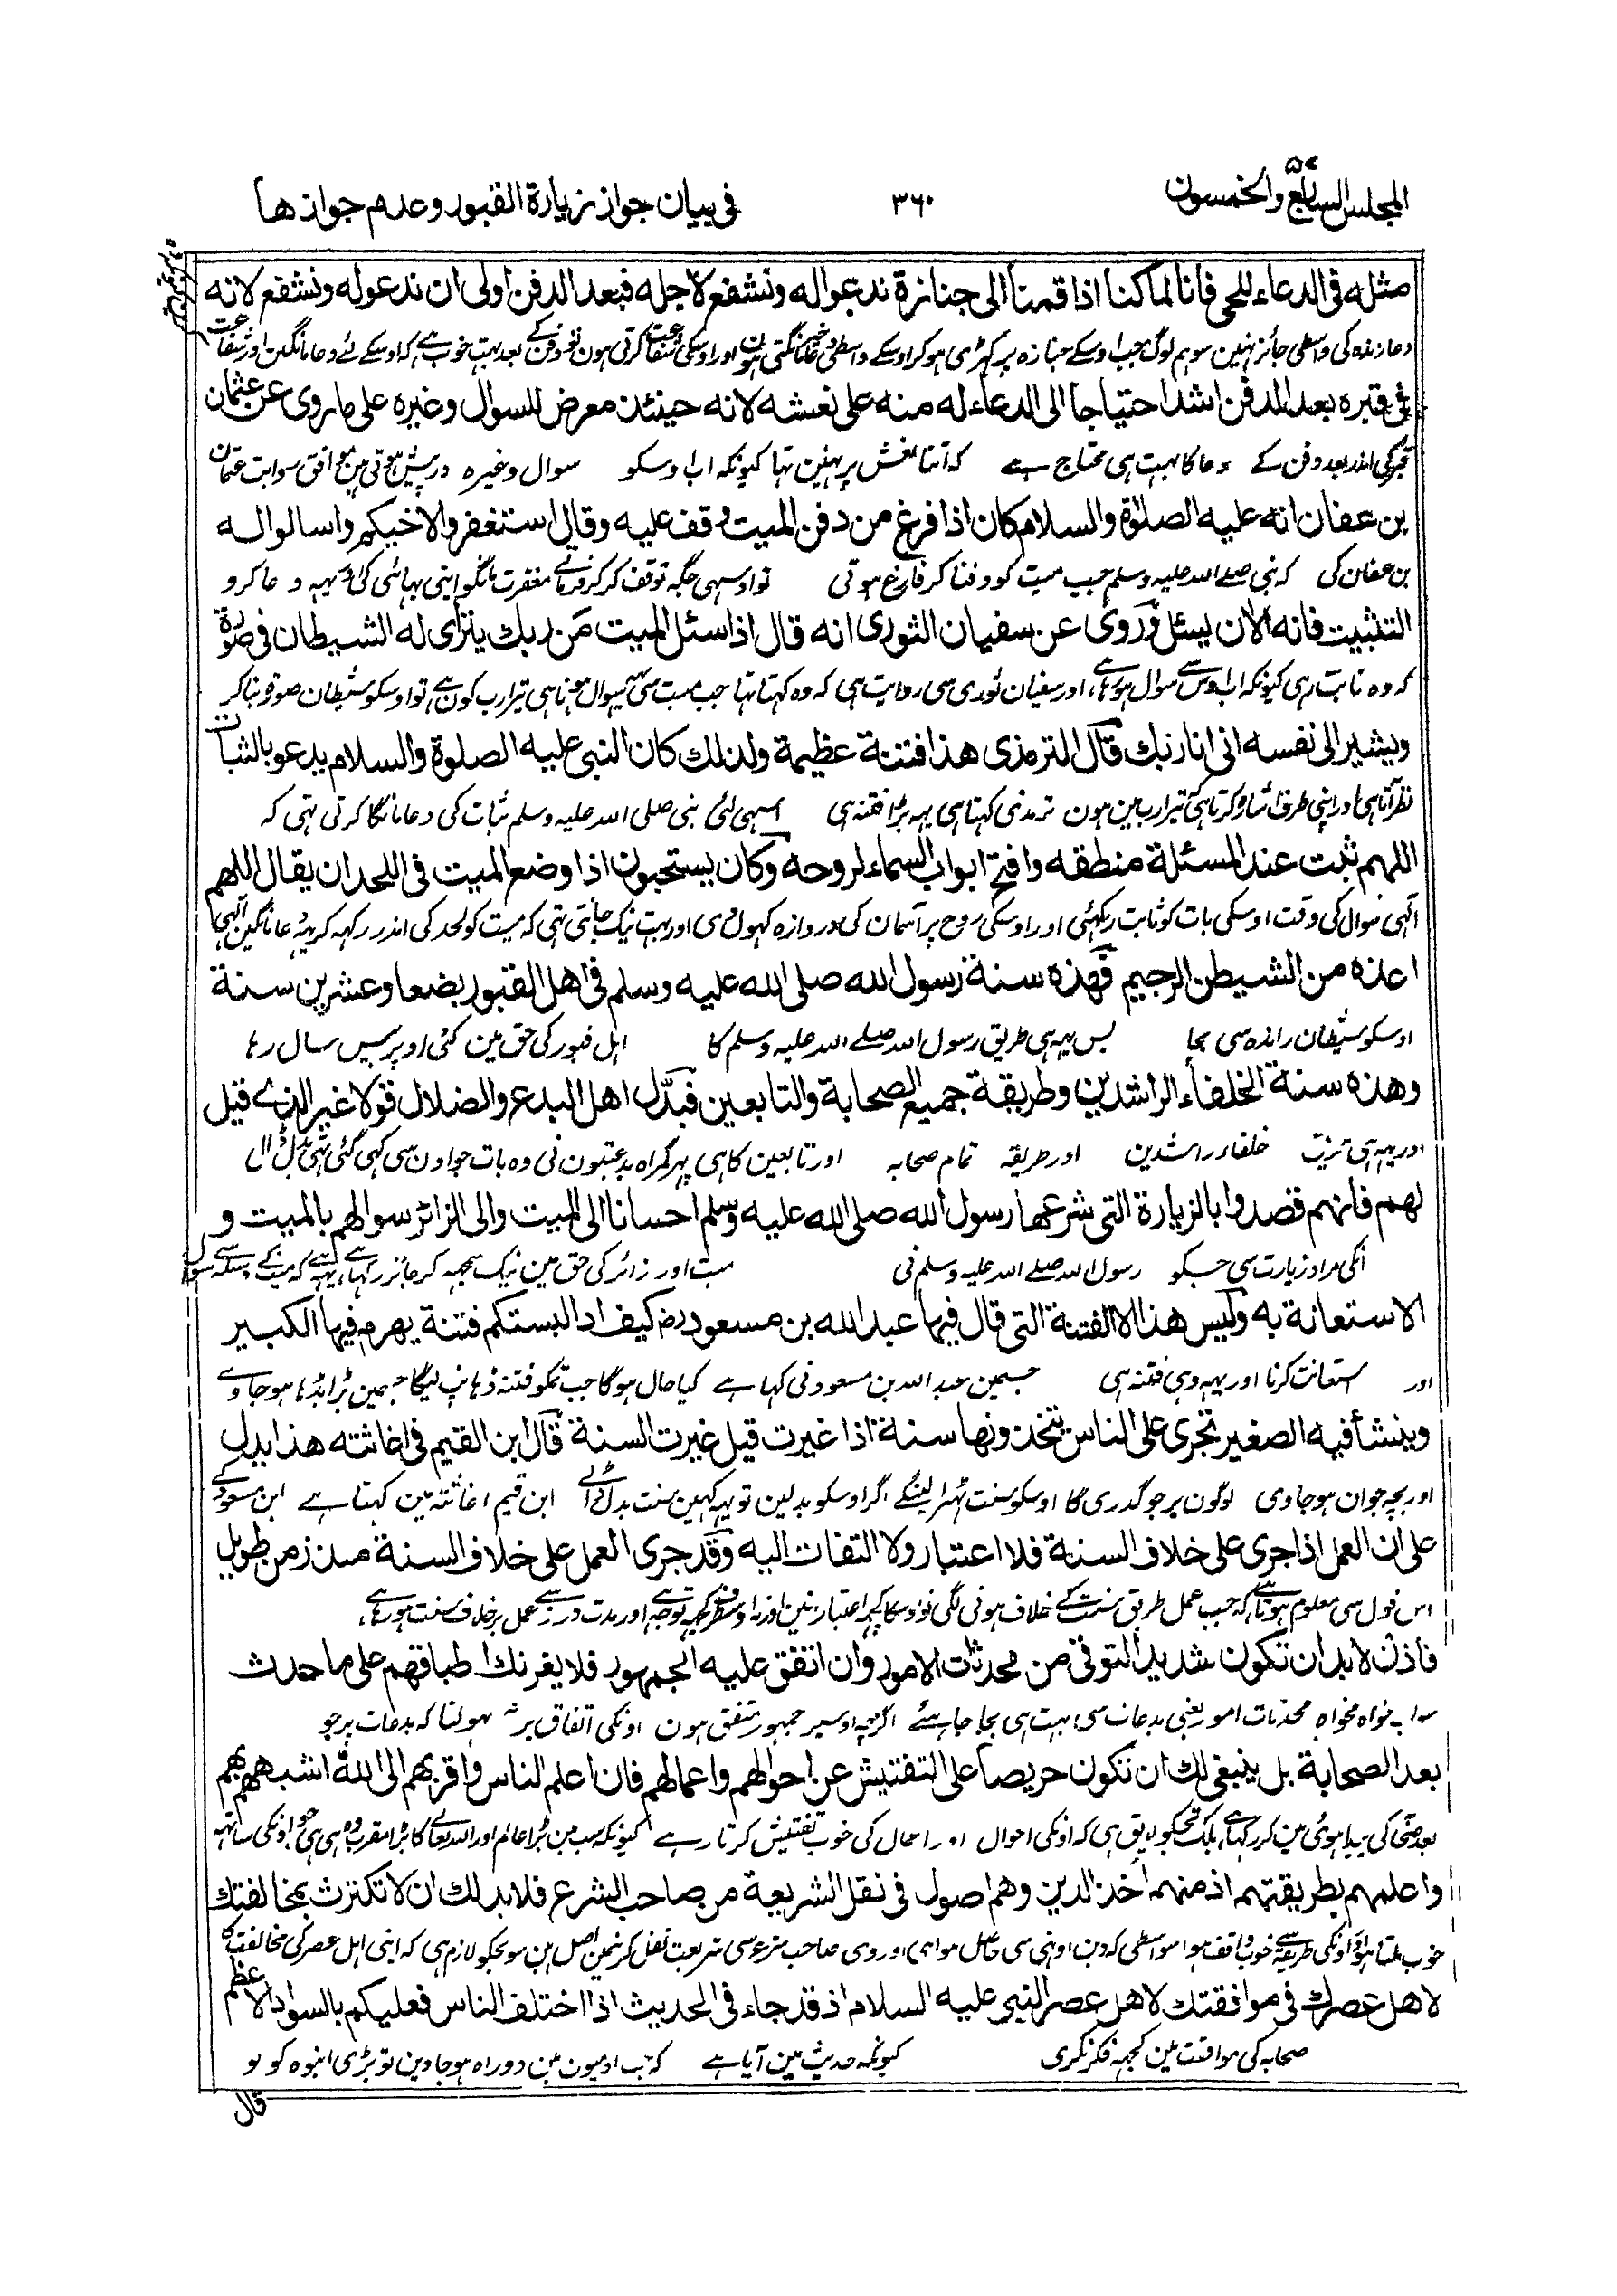 المجلس السابع والخمسون ٥٧
٣٦٠
فى بيان جواز زيارة القبور وعدم جوازها
مثله فى الدعاء للحى فانا لما كنا اذا قمنا الى جنازة ندعوا له ونشفع لاجله فبعد الدفن اولى ان ندعو له ونشفع لانه
دعا زندہ کی واسطی جائز نہین سو ہم لوگ جب اوسکے جنازہ پر کہڑی ہو کر اوسکے واسطی دعا مانگتی ہین اور اوسکی شفاعت کرتی ہون تو دفن کے بعد بہت خوب ہے کہ اوسکے لئے دعا مانگین اور شفاعت
فى قبره بعد الدفن اشد احتياجا الى الدعاء له منه على نعشه لانه حينئذ معرض للسوال وغيره على ما روى عن عثمان
قبر کی اندر بعد دفن کے دعا کا بہت ہی محتاج ہے کہ اتنا نعش پر نہین تہا کیونکہ اب اوسکو سوال وغیرہ درپیش ہوتی ہین موافق روایت عثمان
بن عفان انه عليه الصلوة والسلام كان اذا فرغ من دفن الميت وقف عليه وقال استغفروا لاخيكم واسالوا له
بن عفان کی کہ نبی صلے اللہ علیہ وسلم جب میت کو دفنا کر فارغ ہوتی تو اوسہی جگہ توقف کر کر فرماتے مغفرت مانگو اپنی بہائی کی اور یہہ دعا کرو
التثبيت فانه الان يسئل وروى عن سفيان الثورى انه قال اذا سئل الميت من ربك يتراى له الشيطان فى صورة
کہ وہ ثابت رہی کیونکہ اب اوس سے سوال ہو رہا ہے، اور سفیان ثوری سی روایت ہی کہ وہ کہتا تہا جب میت سی یہہ سوال ہوتا ہی تیرا رب کون ہے، تو اوسکو شیطان صورۃ بنا کر
ويشير الى نفسه انى انا ربك قال الترمذى هذا فتنة عظيمة ولذلك كان النبى عليه الصلوة والسلام يدعو بالثبات
نظر آتا ہی اور اپنی طرف اشارہ کرتا ہی کہ تیرا رب مین ہون ترمذی کہتا ہی یہہ بڑا فتنہ ہی اسہی لئی نبی صلی اللہ علیہ وسلم ثبات کی دعا مانگا کرتی تہی کہ
اللهم ثبت عند المسئلة منطقه وافتح ابواب السماء لروحه وكان يستحبون اذا وضع الميت فى اللحد ان يقال اللهم
الہی سوال کی وقت اوسکی بات کو ثابت رکہئی اور اوسکی روح پر آسمان کی دروازہ کہول دی اور بہت نیک جانتی تہی کہ میت کو لحد کی اندر رکہہ کر یہہ دعا مانگین الہی
اعذه من الشيطن الرجيم فهذه سنة رسول الله صلى الله عليه وسلم فى اهل القبور بضعا وعشرين سنة
اوسکو شیطان راندہ سی بچا بس یہہ ہی طریق رسول اللہ صلے اللہ علیہ وسلم کا اہل قبور کی حق مین کئی اوپر بیس سال رہا
وهذه سنة الخلفاء الراشدين وطريقة جميع الصحابة والتابعين فبدل اهل البدع والضلال قولا غير الذے قيل
اور یہہ ہی خلفاء راشدین اور طریقہ تمام صحابہ اور تابعین کا ہی پہر گمراہ بدعتیون نی وہ بات جو اون سی کہی گئی تہی بدل ڈالی
لهم فانهم قصدوا بالزيارة التى شرعها رسول الله صلى الله عليه وسلم احسانا الى الميت والى الزائر سوالهم بالميت و
انکی مراد زیارت سی جسکو رسول اللہ صلے اللہ علیہ وسلم نی میت اور زائر کی حق مین نیک سمجہہ کر جائز رکہا ہے، یہہ ہے کہ میت کے وسیلہ سے سوال
الاستعانة به وليس هذا الا الفتنة التى قال فيها عبدالله بن مسعود رض كيف اذا لبستكم فتنة يهرم فيها الكبير
اور استعانت کرنا اور یہہ وہی فتنہ ہی جسمین عبد اللہ بن مسعود نی کہا ہے کیا حال ہوگا جب تمکو فتنہ ڈہانپ لیگا جسمین بڑا بڈہا ہو جاوے
وينشأ فيه الصغير تجرى على الناس يتخذونها سنة اذا غيرت قيل غيرت السنة قال ابن القيم فى اغاثته هذا يدل
اور بچہ جوان ہو جاوی لوگون پر جو گذری گا اوسکو سنت ٹہرا لینگے اگر اوسکو بدلین تو یہہ کہین سنت بدل ڈالے ابن قیم اغاثتہ مین کہتا ہے ابن مسعود کے
على ان العمل اذا جرى على خلاف السنة فلا اعتبار ولا التفات اليه وقد جرى العمل على خلاف السنة منذ زمن طويل
اس قول سی معلوم ہوتا ہے کہ جب عمل طریق سنت کے خلاف ہونی لگی تو اوسکا کچہہ اعتبار نہین اور نہ اوسطرف کچہہ توجہ ہے اور مدت دراز سے عمل برخلاف سنت ہو رہا ہے،
فاذن لا بد ان تكون شديد التوقى من محدثات الامور وان اتفق عليه الجمهور فلا يغرنك اطباقهم على ما حدث
اب خواہ مخواہ محدثات امور یعنی بدعات سی بہت ہی بچا چاہئے اگرچہ اوسپر جمہور متفق ہون اونکی اتفاق پر نہ بہولنا کہ بدعات پر جو
بعد الصحابة بل ينبغى لك ان تكون حريصا على التفتيش عن احوالهم واعمالهم فان اعلم الناس واقربهم الى الله اشبههم بهم
بعد صحابہ کی پیدا ہوئی ہین کر رکہا ہے، بلکہ تجکو لایق ہی کہ اونکی احوال اور اعمال کی خوب تفتیش کرتا رہے کیونکہ سب مین بڑا عالم اور اللہ تعالے کا بڑا مقرب وہ ہی ہی جو اونکی ساتہہ
واعلمهم بطريقتهم اذ منهم اخذ الدين وهم اصول فى نقل الشريعة من صاحب الشرع فلا بد لك ان لا تكترث بمخالفتك
خوب ملتا ہو اور اونکی طریقہ سے خوب واقف ہو اسواسطی کہ دین اونہی سی حاصل ہوا ہی اور وہی صاحب شرع سی شریعت نقل کرنیمین اصل ہین سو تجکو لازم ہی کہ اپنی اہل عصر کی مخالفت کا
لاهل عصرك فى موافقتك لاهل عصر النبى عليه السلام اذ قد جاء فى الحديث اذا اختلف الناس فعليكم بالسواد الاعظم
صحابہ کی موافقت مین کچہہ فکر نکری کیونکہ حدیث مین آیا ہے کہ جب ادمیون مین دو راہ ہو جاوین تو بڑی انبوہ کو لو
قال